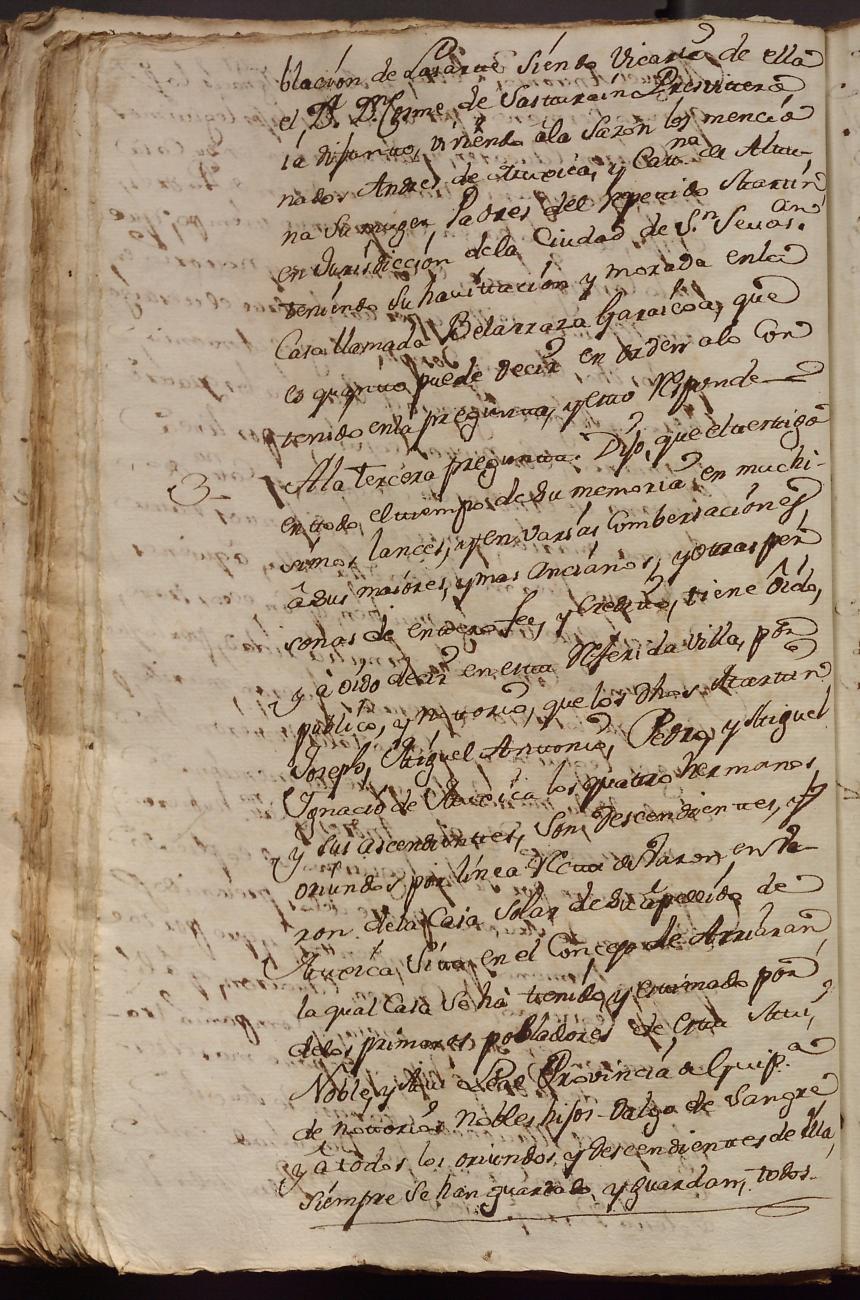 blación de Lasarte siendo Vicario de ella
el Dr. Dn. Cosme de Sasturain Presvitero
ia difunto, viviendo ala sazon los mencio
nados Andres de Atucica, y Cata.na de Altu,
na su muger Padres del referido Martin
en Jurisdicción dela Ciudad de S.n Sevas.an
teniendo su havitación y morada enla
Casa llamada Belarraza Garaicoa, que
es quanto puede decir en orden alo con
tenido enla pregunta, y esto responde
3 Ala tercera pregunta. Dijo, que el testigo
en todo el tiempo de su memoria en muchi-
simos lances, y en varias combersaciónes
â sus maiores, y mas Anciános, y otras per
sonas de entera fee, y credito, tiene ôido,
y â oido decir en esta referida villa, por
publico, y notorio, que los dhos Martin
Joseph, Miguel Antonio, Pedro, y Miguel
Ignacio de Atucica los quatro hermanos,
y sus ascendientes, son descendientes, y
oriundos por línea recta de Varon, en Va-
ron dela Casa Solar de su âpellido de
Atucica, sita en el Concejo de Arriaran,
la qual Casa se hà tenido y estimado por
delos primeros pobladores de esta Mui,
Noble, y Mui Leal Provincia de Guip.a
de notorios Nobles hijos-dalgo de Sangre
y â todos los oriundos, y descendientes de ella,
siempre se han guardado, y guardan, todos-